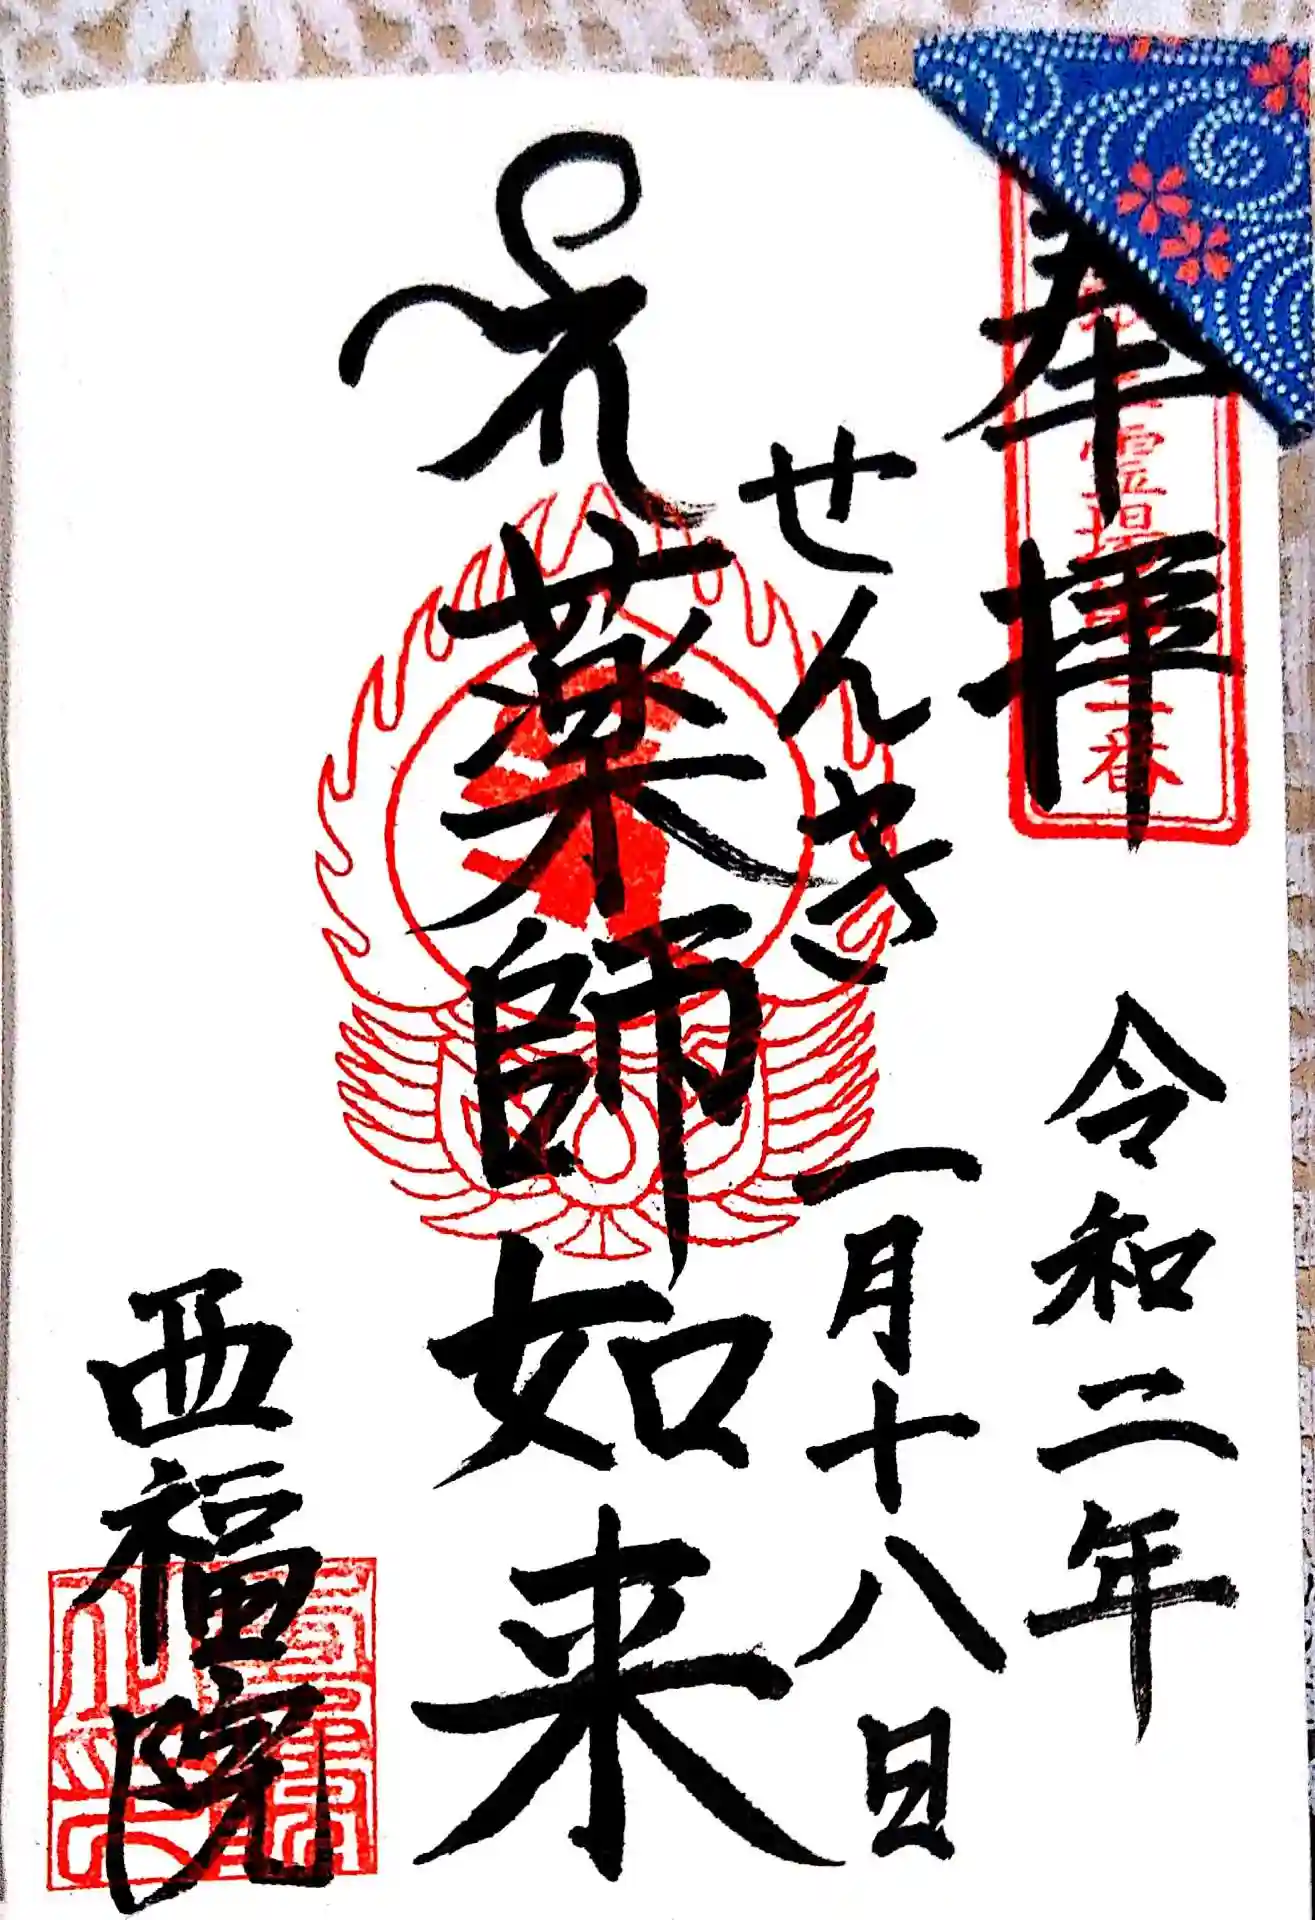 奉拝
霊場
番
令和二年
一月十八日
せんき
薬師如来
西福院